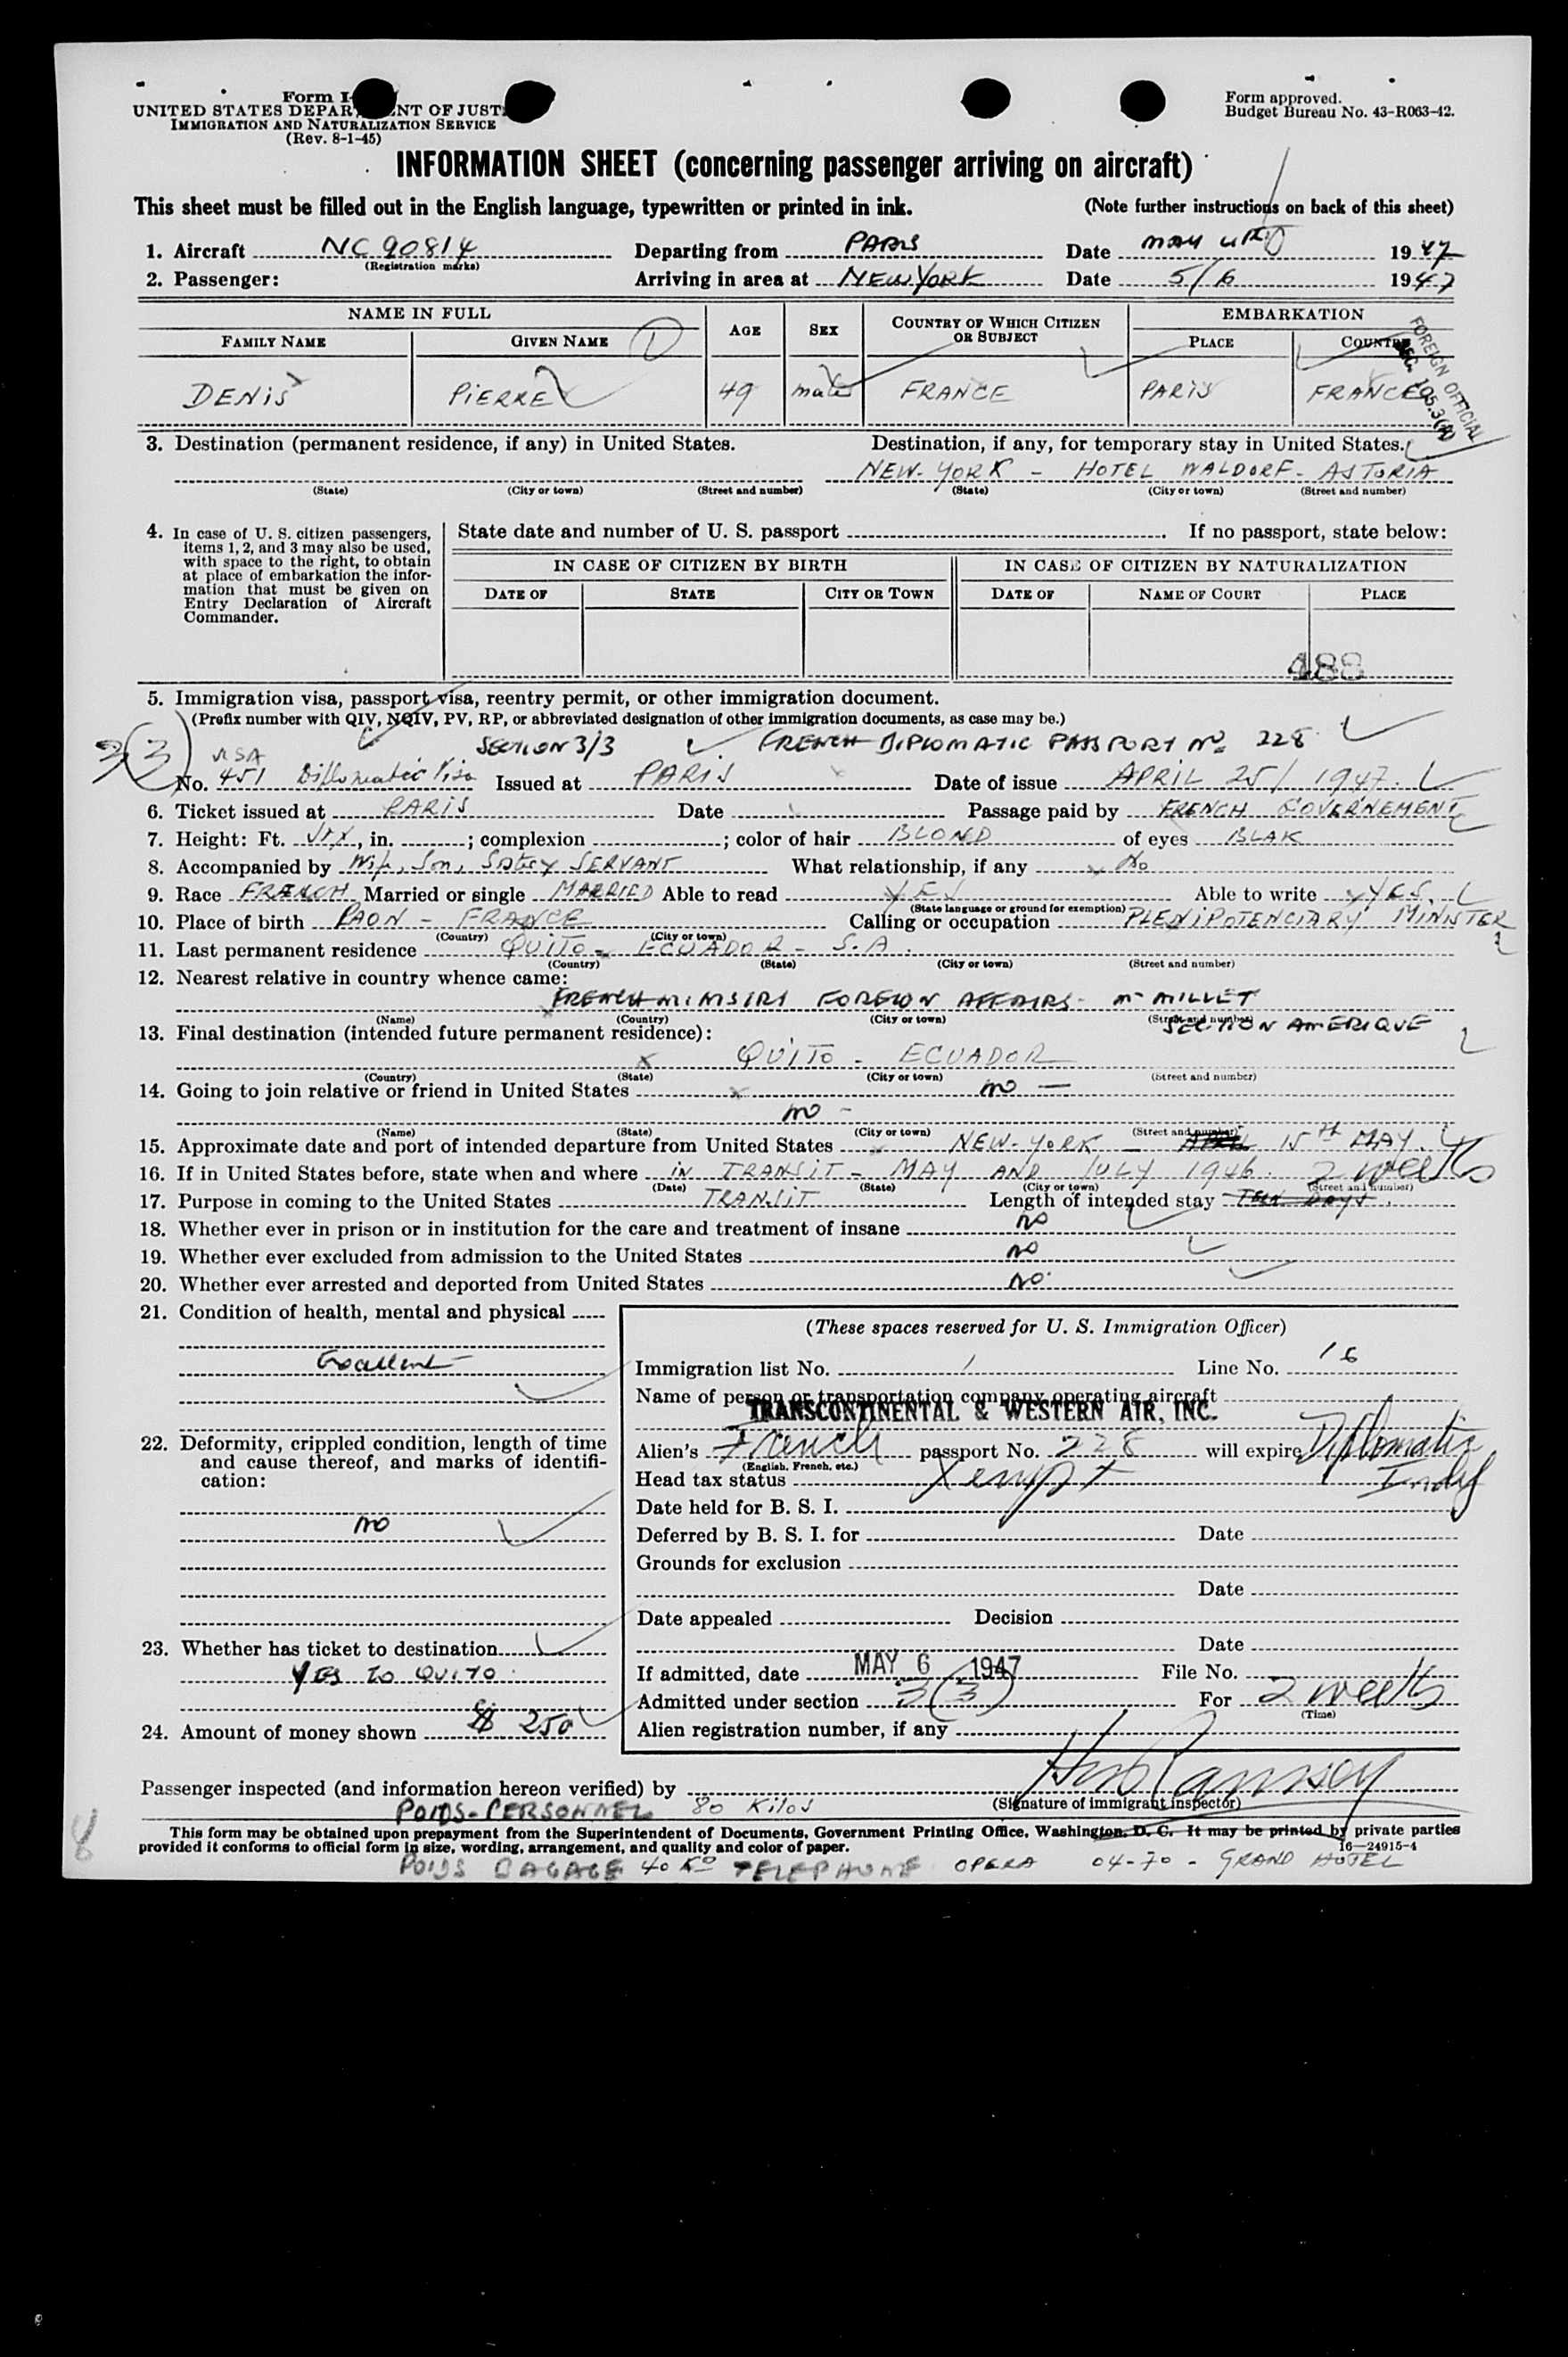 Form I-
UNITED STATES DEPAR NT OF JUST
IMMIGRATION AND NATURALIZATION SERVICE
(Rev. 8-1-45)
Form approved.
Budget Bureau No. 43-R063-42.
INFORMATION SHEET (concerning passenger arriving on aircraft)
This sheet must be filled out in the English language, typewritten or printed in ink. (Note further instructions on back of this sheet)
1. Aircraft NC 90814 Departing from PARIS Date MAY 4th 1947
(Registration marks)
2. Passenger: Arriving in area at NEW YORK Date 5/6 1947
NAME IN FULL AGE SEX COUNTRY OF WHICH CITIZEN OR SUBJECT EMBARKATION
FAMILY NAME GIVEN NAME PLACE COUNTRY
FOREIGN OFFICIAL
SEC. 105.3(A)
DENIS PIERRE 49 male FRANCE PARIS FRANCE
3. Destination (permanent residence, if any) in United States. Destination, if any, for temporary stay in United States.
NEW-YORK - HOTEL WALDORF-ASTORIA
(State) (City or town) (Street and number) (State) (City or town) (Street and number)
4. In case of U. S. citizen passengers, items 1, 2, and 3 may also be used, with space to the right, to obtain at place of embarkation the information that must be given on Entry Declaration of Aircraft Commander.
State date and number of U. S. passport . If no passport, state below:
IN CASE OF CITIZEN BY BIRTH IN CASE OF CITIZEN BY NATURALIZATION
DATE OF STATE CITY OR TOWN DATE OF NAME OF COURT PLACE
488
5. Immigration visa, passport visa, reentry permit, or other immigration document.
(Prefix number with QIV, NQIV, PV, RP, or abbreviated designation of other immigration documents, as case may be.)
3(3) VISA SECTION 3/3 FRENCH DIPLOMATIC PASSPORT No 228
No. 451 Diplomatic Visa Issued at PARIS Date of issue APRIL 25/1947.
6. Ticket issued at PARIS Date Passage paid by FRENCH GOVERNEMENT
7. Height: Ft. six, in. ; complexion ; color of hair BLOND of eyes BLAK
8. Accompanied by Wife, Son, SERVANT What relationship, if any No
9. Race FRENCH Married or single MARRIED Able to read YES Able to write YES.
(State language or ground for exemption)
10. Place of birth PAON - FRANCE Calling or occupation PLENIPOTENCIARY MINISTER
(Country) (City or town)
11. Last permanent residence QUITO - ECUADOR - S.A.
(Country) (State) (City or town) (Street and number)
12. Nearest relative in country whence came:
FRENCH MINISIRY FOREIGN AFFAIRS - Mr MILLET
(Name) (Country) (City or town) (Street and number)
SECTION AMERIQUE
13. Final destination (intended future permanent residence):
QUITO - ECUADOR
(Country) (State) (City or town) (Street and number)
14. Going to join relative or friend in United States no —
no -
(Name) (State) (City or town) (Street and number)
15. Approximate date and port of intended departure from United States NEW-YORK - APRIL 15th MAY.
16. If in United States before, state when and where IN TRANSIT - MAY AND JULY 1946. 2 weeks
(Date) (State) (City or town) (Street and number)
17. Purpose in coming to the United States TRANSIT Length of intended stay TEN DAYS.
18. Whether ever in prison or in institution for the care and treatment of insane no
19. Whether ever excluded from admission to the United States no
20. Whether ever arrested and deported from United States no.
21. Condition of health, mental and physical
Excellent
22. Deformity, crippled condition, length of time and cause thereof, and marks of identification:
no
23. Whether has ticket to destination
YES to QUITO.
24. Amount of money shown $ 250
(These spaces reserved for U. S. Immigration Officer)
Immigration list No. 1 Line No. 16
Name of person or transportation company operating aircraft
TRANSCONTINENTAL & WESTERN AIR, INC.
Alien's French passport No. 228 will expire Diplomatic Indef
(English, French, etc.)
Head tax status Xempt
Date held for B. S. I.
Deferred by B. S. I. for Date
Grounds for exclusion
Date
Date appealed Decision
Date
If admitted, date MAY 6 1947 File No.
Admitted under section 3(3) For 2 weeks
(Time)
Alien registration number, if any
Passenger inspected (and information hereon verified) by
(Signature of immigrant inspector)
POIDS-PERSONNEL 80 Kilos
This form may be obtained upon prepayment from the Superintendent of Documents, Government Printing Office, Washington, D. C. It may be printed by private parties
provided it conforms to official form in size, wording, arrangement, and quality and color of paper. 16—24915-4
8
POIDS BAGAGE 40 Ko TELEPHONE OPERA 04-70 - GRAND HOTEL